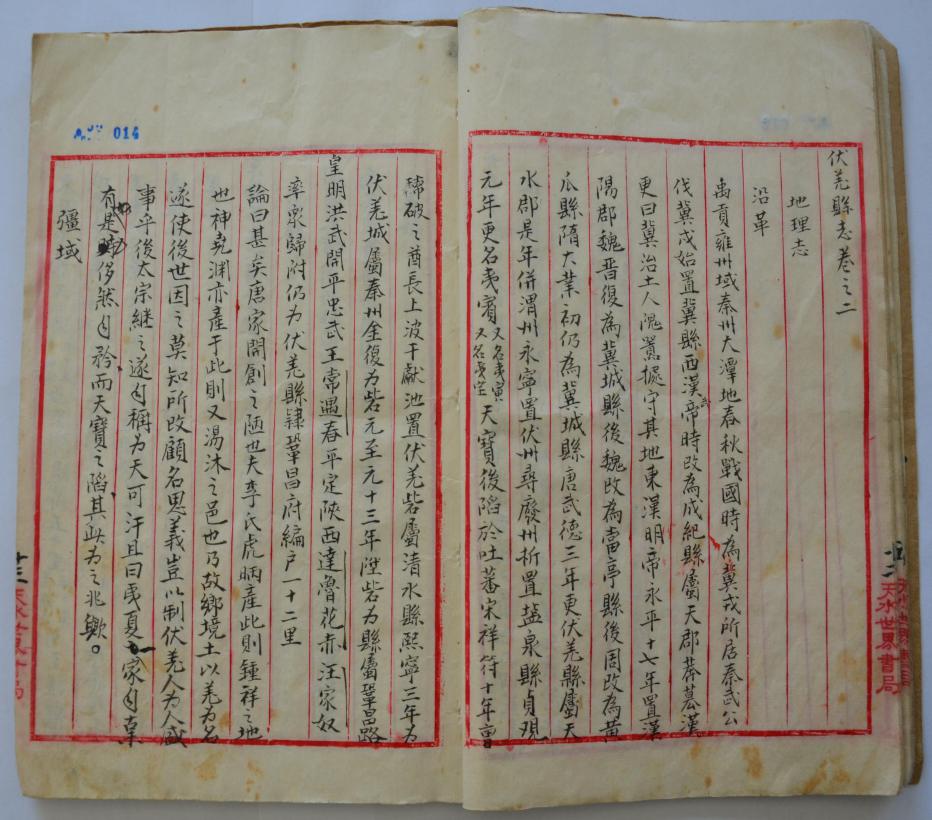 伏羌縣志卷之二
地理志
沿革
禹貢雍州域秦州大潭地春秋戰國時為冀戎所居秦武公
伐冀戎始置冀縣西漢武帝時改為成紀縣屬天郡莽篡漢
更曰冀治土人隗囂據守其地東漢明帝永平十七年置漢
陽郡魏晋復為冀城縣後魏改為當亭縣後周改為黃
瓜縣隋大業初仍為冀城縣唐武德三年更伏羌縣屬天
水郡是年併渭州永寧置伏州尋廢州析置塩泉縣貞观
元年更名夷賓又名夷賓又名天寶後陷於吐蕃宋祥符十年曹
瑋破之酋長上波干獻池置伏羌砦屬清水縣熙寧三年为
伏羌城屬秦州金復为砦元至元十三年陞砦为縣屬鞏昌路
皇明洪武開平忠武王常遇春平定陝西達魯花赤汪家奴
率衆歸附仍为伏羌縣隸鞏昌府編户一十二里
論曰甚矣唐家開創之陋也夫李氏虎昞產此則鍾祥之地
也神堯渊亦產于此則又湯沐之邑也乃故鄉境土以羌为名
遂使後世因之莫知所改顧名思義豈以制伏羌人为人盛
事乎後太宗継之遂自稱为天可汗且曰夷夏一家自東
有是侈然自矜而天寶之陷其此为之兆歟。
彊域
A 014
十二
天水世界書局
十三
天水世界書局